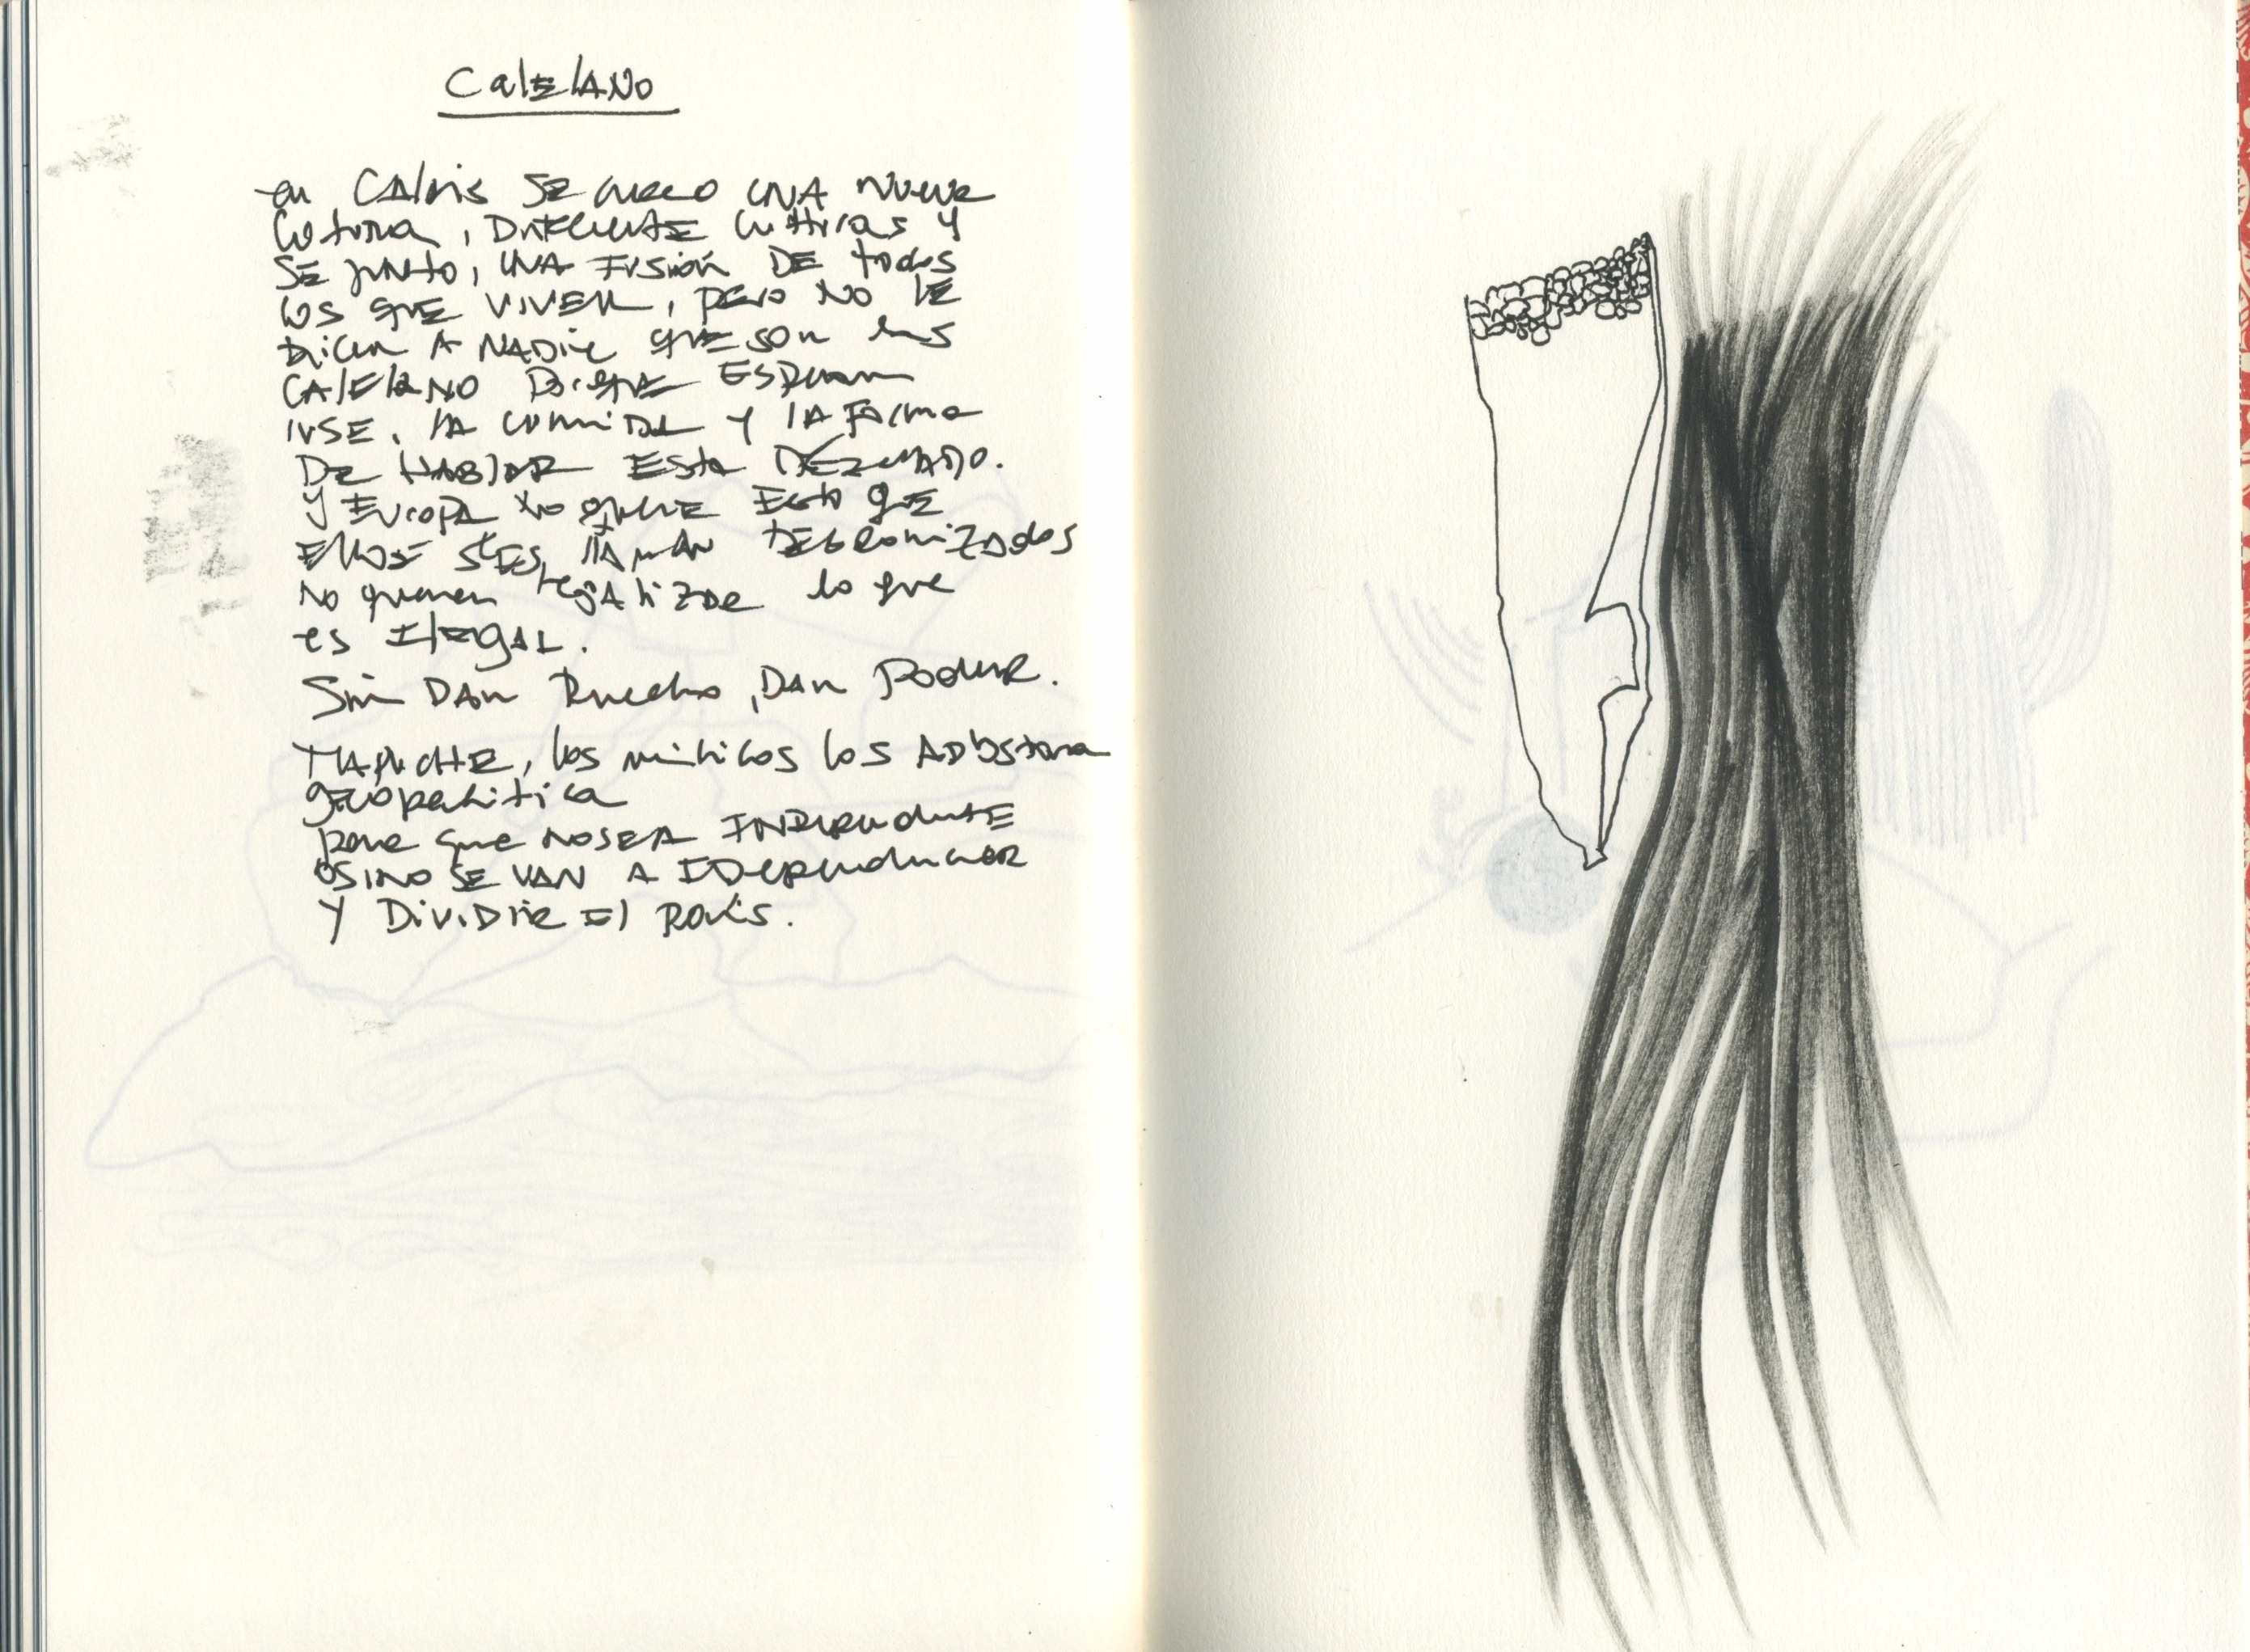 CalElANO
en CAlais SE creo UNA nueva
Cutura, DiFErentE Culturas y
SE junto, UNA Fusión DE todos
los quE VIVEN, pero NO lE
dicen A NADie quE son
CAlElaNO Porque Esperan
irSE. lA comida y lA Forma
DE HABlAR Esta
y EuropA no quiere Esto quE
no quieren legAlizar lo que
es IlEgAL.
Si DAn Derecho, DAn PodeR.
MAPUCHE, los milicos los
gEopolitica
para que no SEA INDEpendientE
O Sino SE VAN A
Y DiViDir El PaíS.